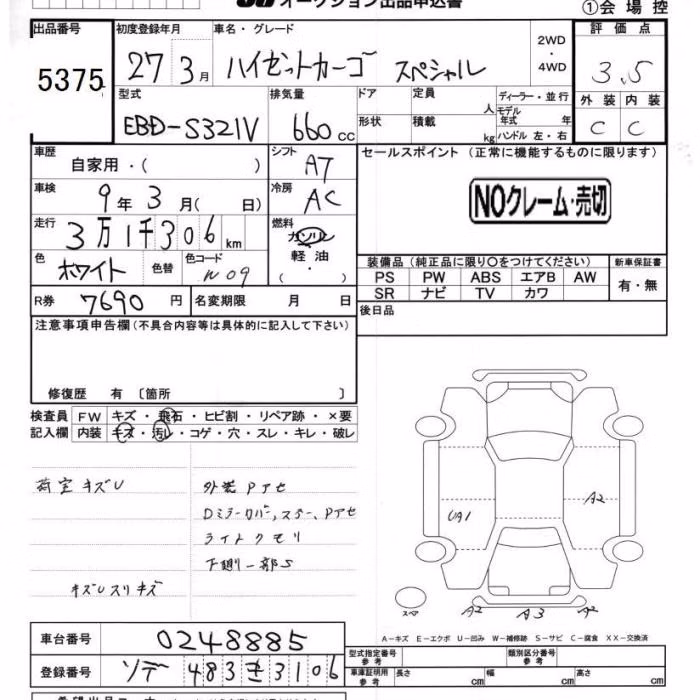 オークション出品申込書
①会場控
出品番号
5375
初度登録年月
27 3月
車名・グレード
ハイゼットカーゴ スペシャル
2WD
・
4WD
評価点
3.5
外装 内装
C C
型式
EBD-S321V
排気量
660 cc
ドア
定員
人
形状
積載
kg
ディーラー・並行
モデル年式 年
ハンドル 左・右
車歴
自家用・( )
シフト
AT
車検
9年3月( 日)
冷房
AC
走行
3万1千306km
燃料
ガソリン
軽油
( ・ )
色
ホワイト
色替
色コード
W09
R券 7690 円
名変期限 月 日
セールスポイント (正常に機能するものに限ります)
NOクレーム・売切
装備品 (純正品に限り〇をつけてください)
新車保証書
PS PW ABS エアB AW
SR ナビ TV カワ
有・無
後日品
注意事項申告欄 (不具合内容等は具体的に記入して下さい)
修復歴 有 〔箇所 〕
検査員記入欄
FW キズ・飛石・ヒビ割・リペア跡・×要
内装 キズ・汚レ・コゲ・穴・スレ・キレ・破レ
荷室キズU
キズUスリキズ
外装Pアセ
Dミラーカバー,ステー、Pアセ
ライトクモリ
下廻り一部S
UA1
A2
スペア
A2 A3 A2
A-キズ E-エクボ U-凹み W-補修跡 S-サビ C-腐食 XX-交換済
車台番号 0248885
登録番号 ソデ 483 き 3106
型式指定番号 参考
類別区分番号 参考
車庫証明用 参考 長さ cm 幅 cm 高さ cm